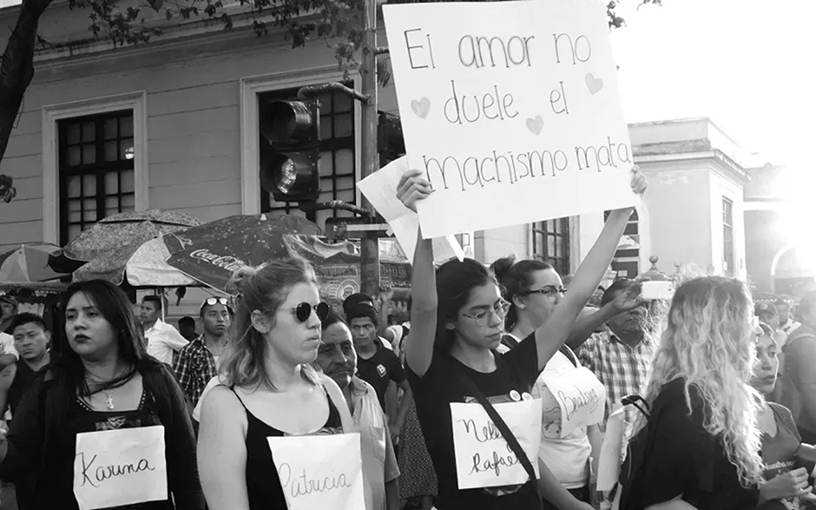 El amor no
duele el
machismo mata
Coca-Cola
Karina
Patricia
Nelly
Rafael